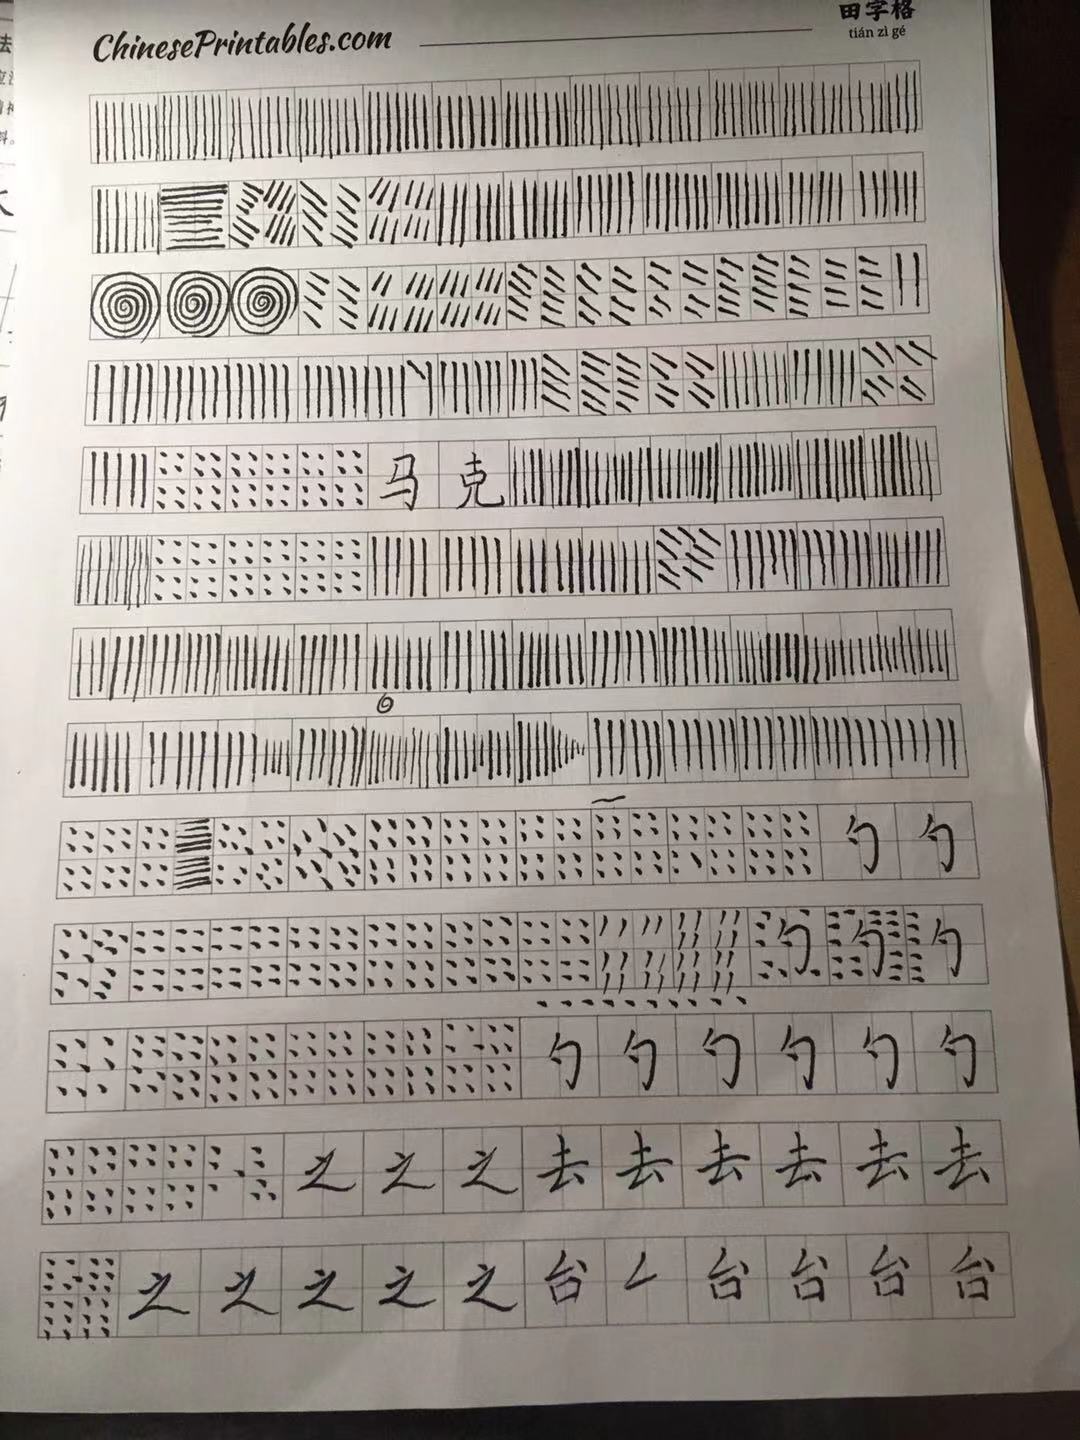 ChinesePrintables.com
田字格
tián zì gé
马 克
勹 勹
勹 勹 勹
勹 勹 勹 勹 勹 勹
之 之 之 去 去 去 去 去 去
之 之 之 之 之 台 厶 台 台 台 台